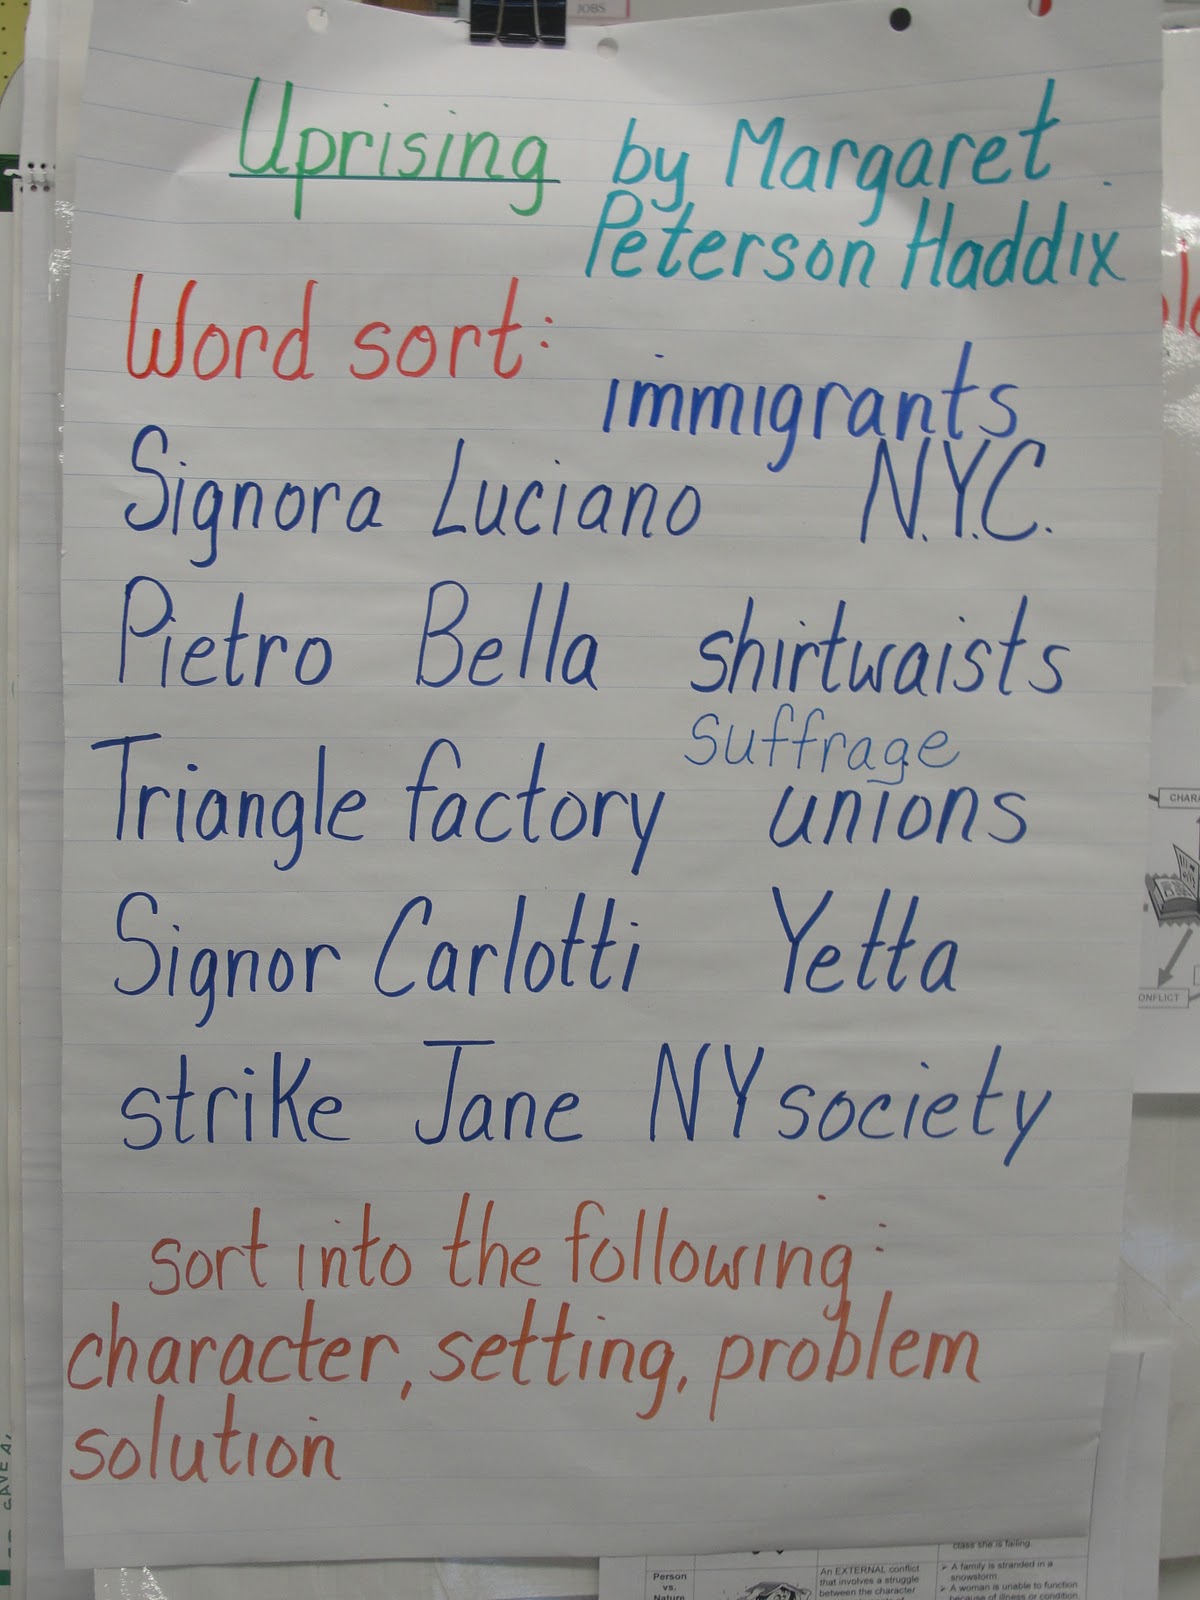 JOBS
Uprising by Margaret
Peterson Haddix
Word sort:
immigrants
Signora Luciano N.Y.C.
Pietro Bella shirtwaists
suffrage
Triangle factory unions
Signor Carlotti Yetta
strike Jane NY society
sort into the following:
character, setting, problem
solution
CHARA
ONFLICT
class she is failing.
Person
vs.
Nature
An EXTERNAL conflict
that involves a struggle
between the character
A family is stranded in a
snowstorm.
A woman is unable to function
because of illness or condition.